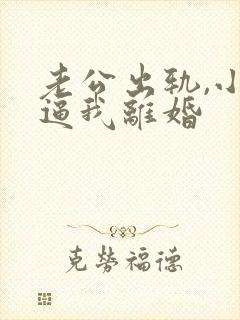 老公出轨,小
逼我離婚
克勞福德